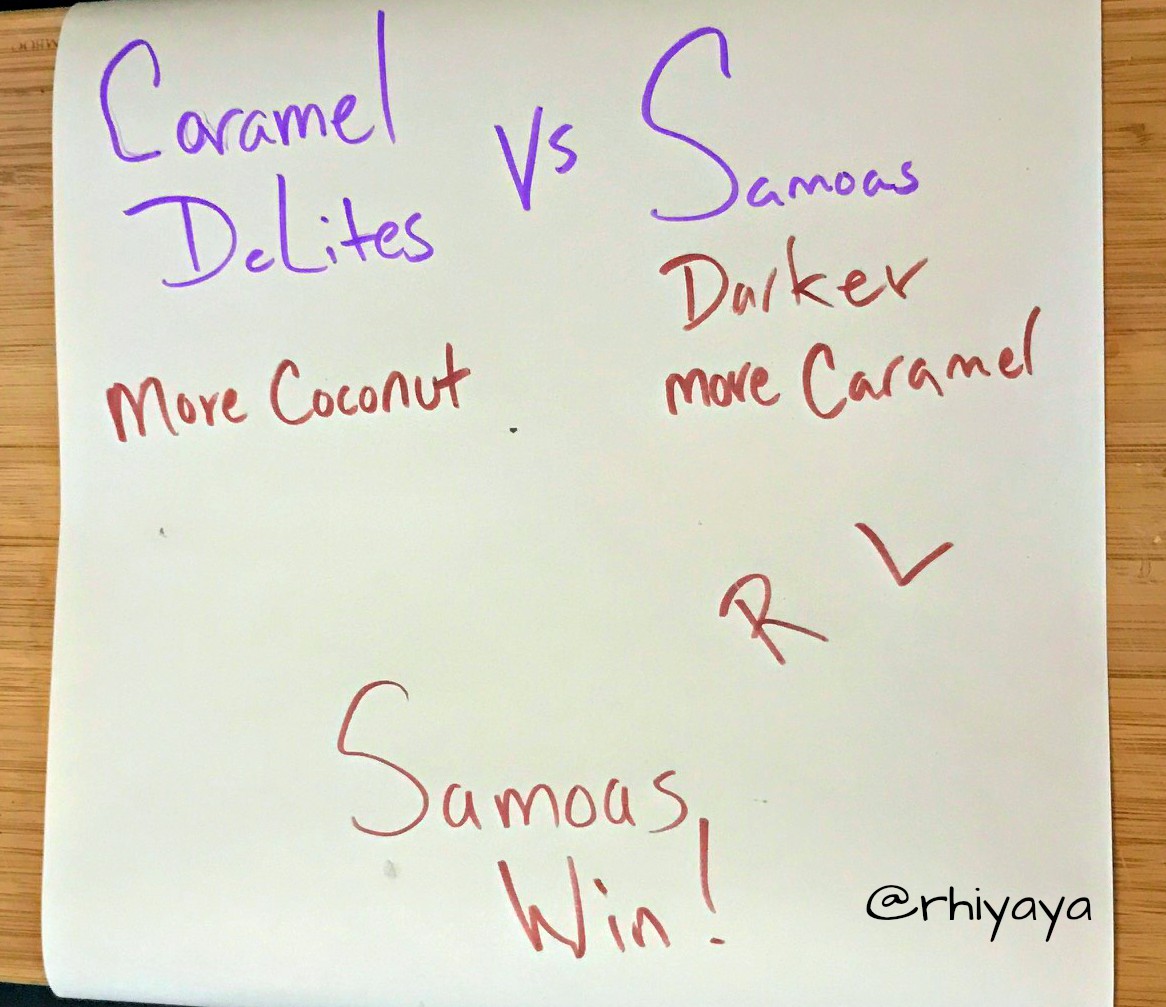 Caramel
DeLites
Vs
Samoas
More Coconut
Darker
more Caramel
R L
Samoas
Win!
@rhiyaya